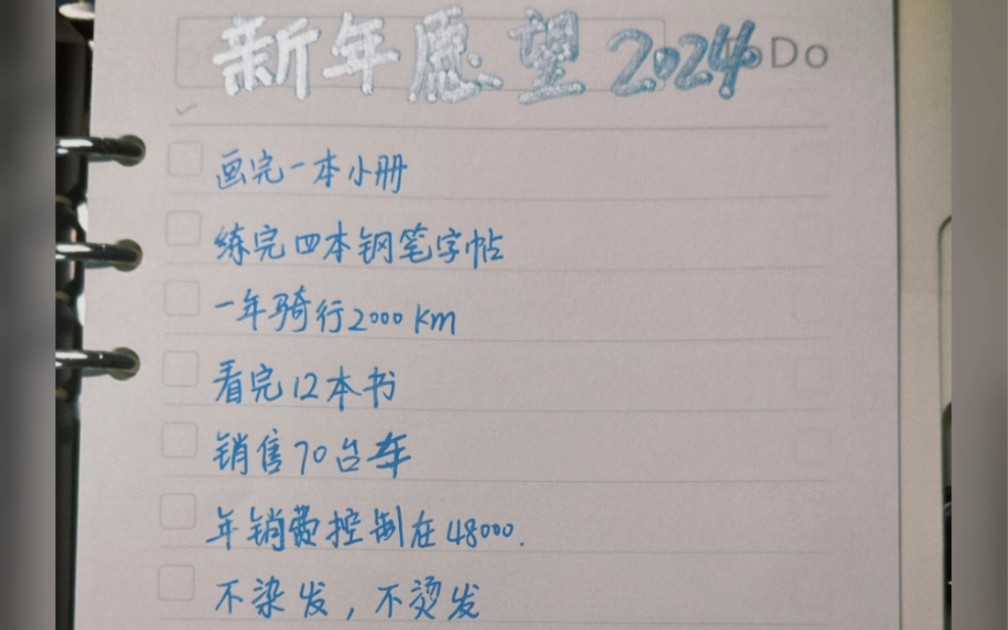 新年愿望2024 Do
画完一本小册
练完四本钢笔字帖
一年骑行2000km
看完12本书
销售70台车
年销费控制在48000.
不染发，不烫发